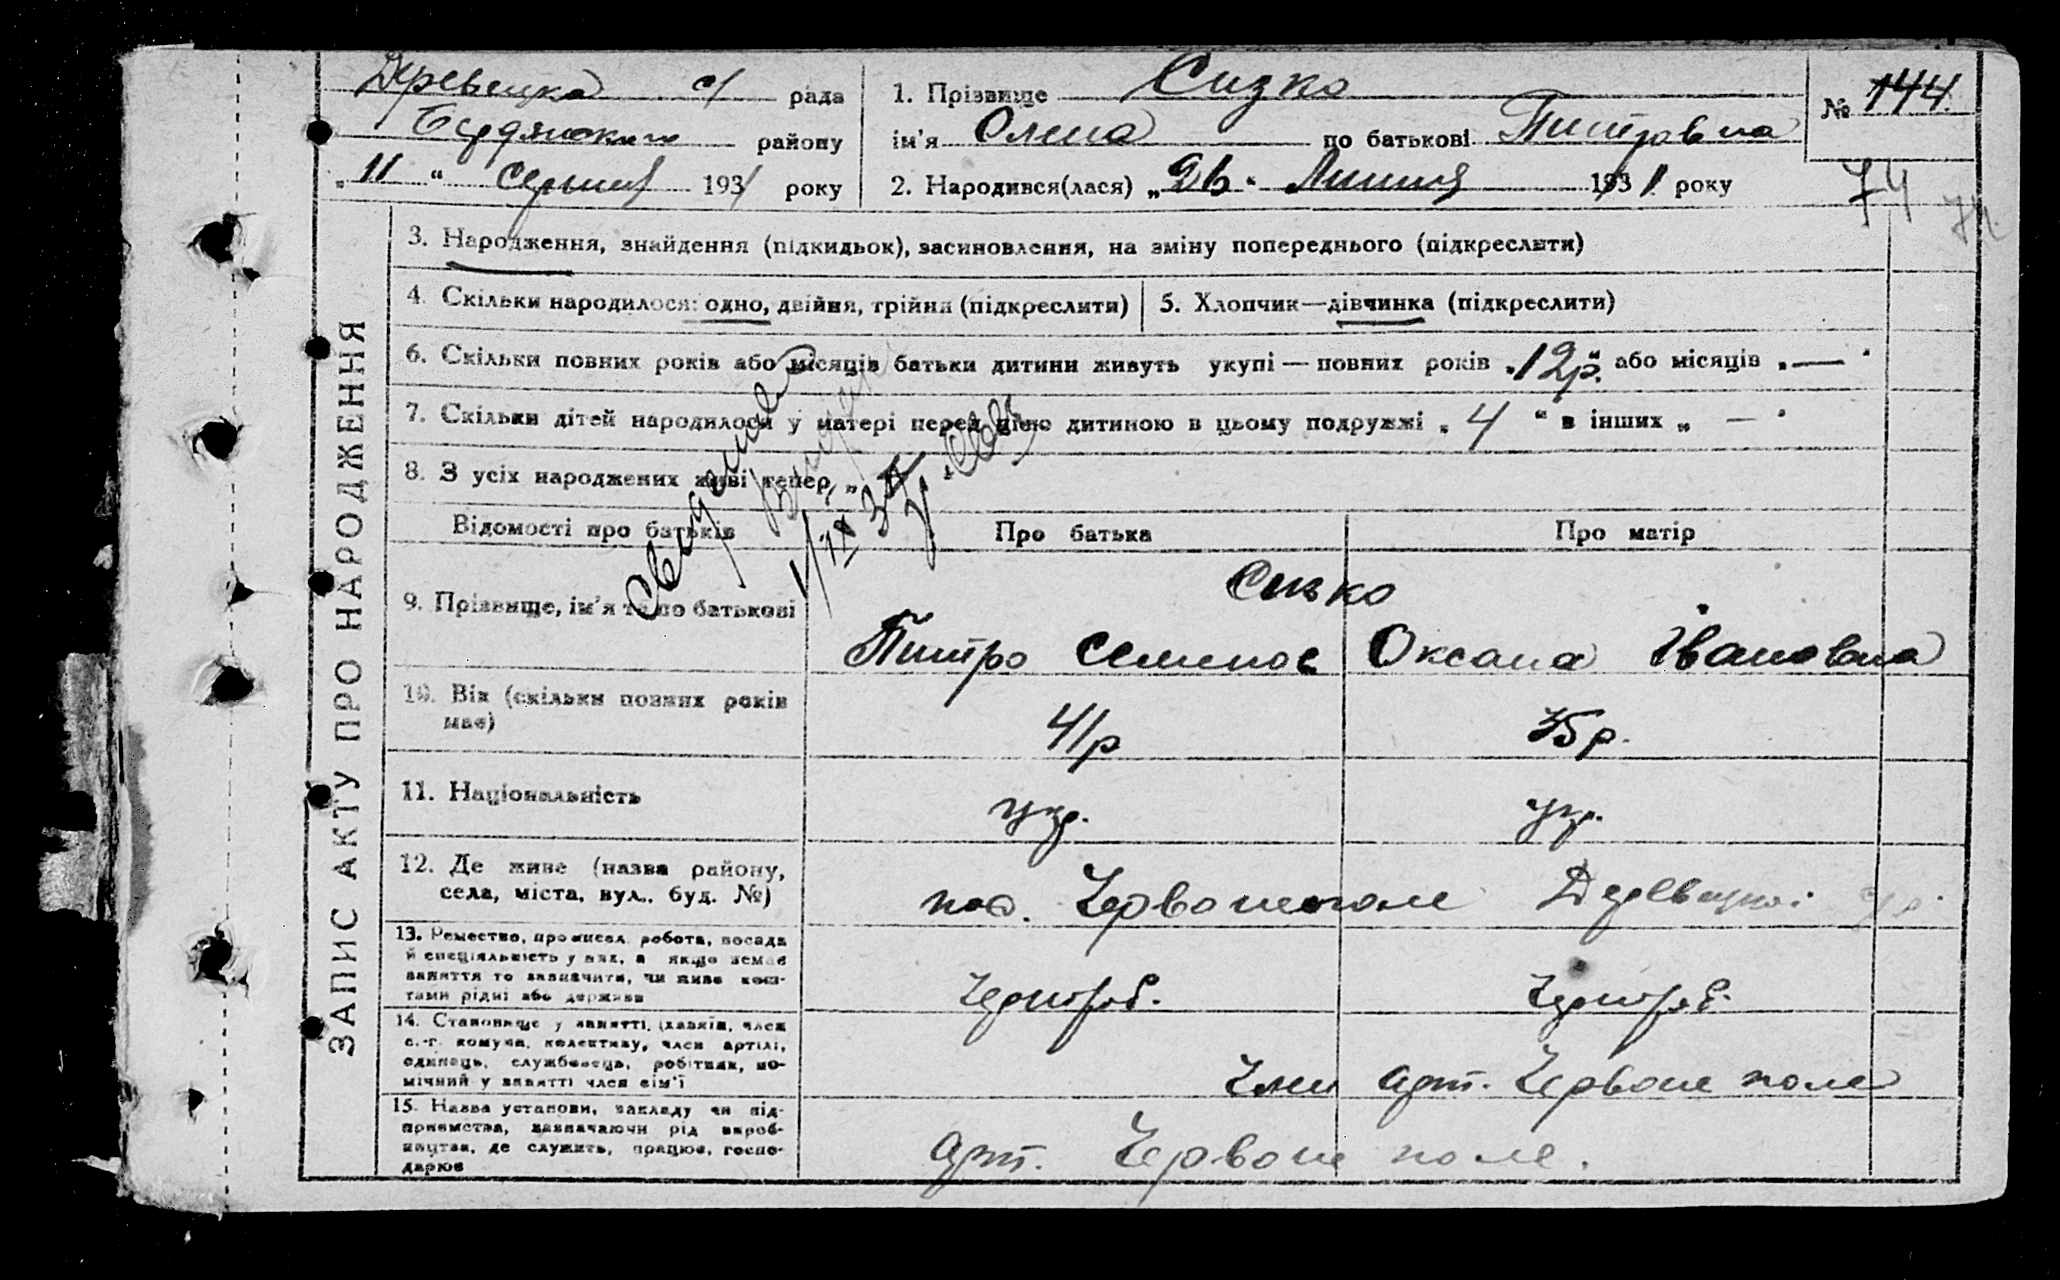 Деревецка с/ рада
Бердянского району
„11“ Серпня 1931 року
1. Прізвище Сизко
ім'я Олена по батькові Питровна
2. Народився(лася) „26“ Липня 1931 року
№ 144.
74
ЗАПИС АКТУ ПРО НАРОДЖЕННЯ
3. Народження, знайдення (підкидьок), засиновлення, на зміну попереднього (підкреслити)
4. Скільки народилося: одно, двійня, трійня (підкреслити)
5. Хлопчик—дівчинка (підкреслити)
6. Скільки повних років або місяців батьки дитини живуть укупі — повних років „12р.“ або місяців „—“
7. Скільки дітей народилося у матері перед цією дитиною в цьому подружжі „4“ в інших „—“
8. З усіх народжених живі тепер „
1/IX 34
Відомості про батьків Про батька Про матір
9. Прізвище, ім'я та по батькові
Сизко
Питро Семенов Оксана Івановна
10. Вік (скільки повних років
має)
41р 35р.
11. Національність
укр. укр.
12. Де живе (назва району,
села, міста, вул.. буд. №)
пос. Червоне поле Деревецкої
13. Ремество, промисел, робота, посада
й спеціяльність у них, а якщо немає
заняття то зазначити, чи живе кош-
тами рідні або держави
14. Становище у занятті, (хазяїн, член
с.-г. комуни, колективу, член артілі,
одинець, службовець, робітник, по-
мічний у занятті член сім'ї
Член арт. Червоне поле
15. Назва установи, закладу чи під-
приємства, зазначаючи рід вироб-
ництва, де служить, працює, госпо-
дарює
арт. Червоне поле.